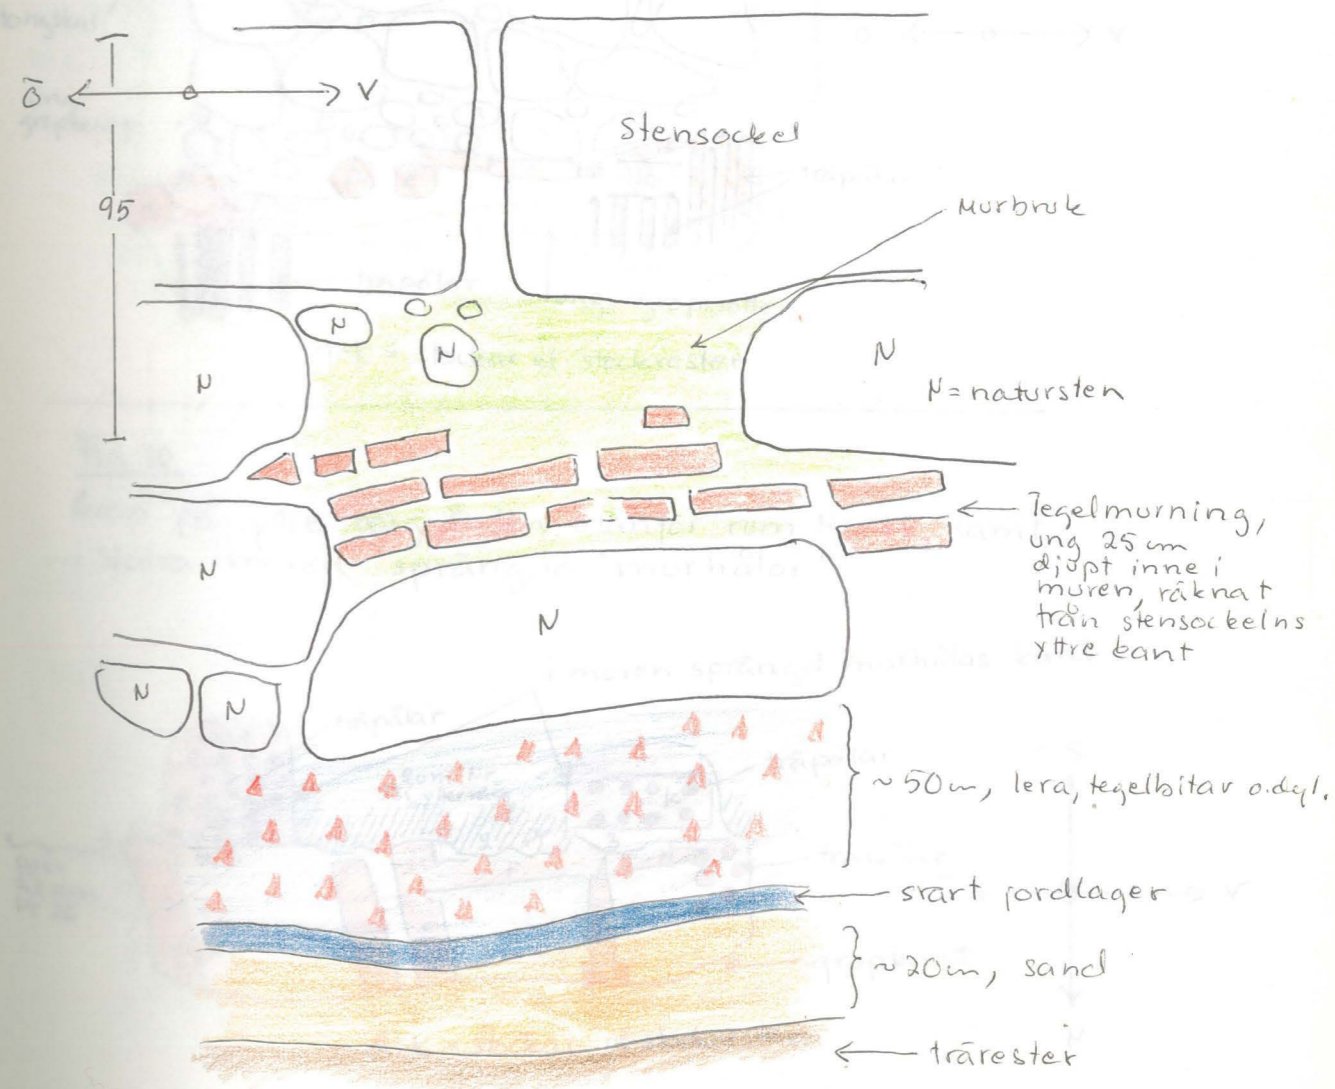 Ö V
Stensockel
95
Murbruk
N
N
N
N
N
N = natursten
Tegelmurning,
ung 25 cm
djupt inne i
muren, räknat
från stensockelns
yttre kant
N
N
N
N
~50 cm, lera, tegelbitar o.dyl.
svart jordlager
~20 cm, sand
trärester